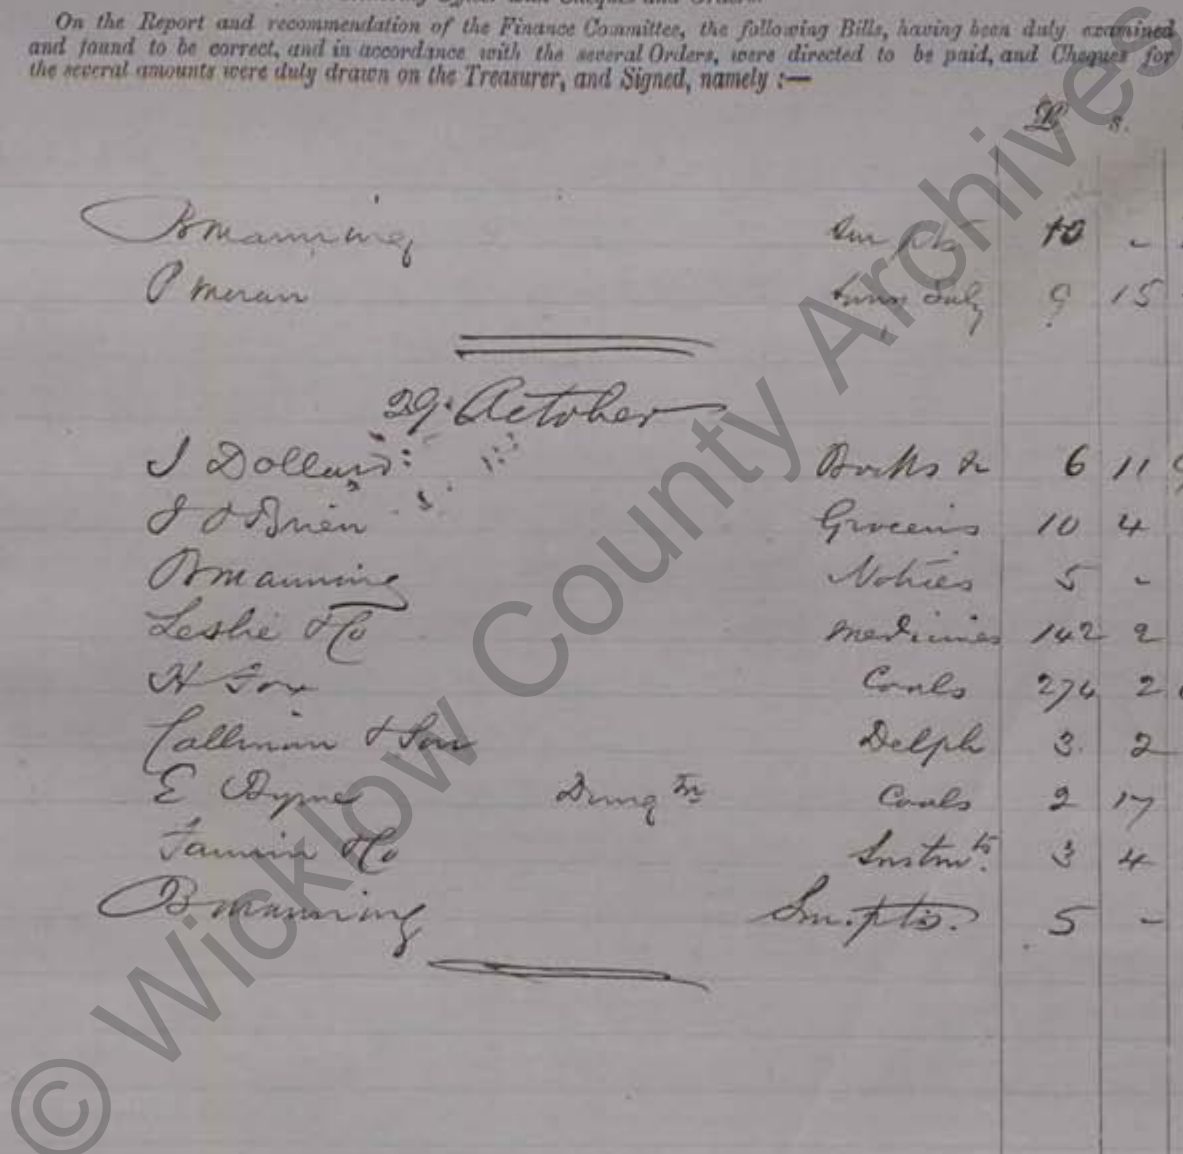 On the Report and recommendation of the Finance Committee, the following Bills, having been duly examined
and found to be correct, and in accordance with the several Orders, were directed to be paid, and Cheques for
the several amounts were duly drawn on the Treasurer, and Signed, namely :—
£ s.
B Manning Sm pts 10 -
P Meran July 9 15
29. October
J Dollard Books &c 6 11 9
J O'Brien 10 4
B Manning Notices 5 -
Leslie & Co Medicines 142 2
H Fox Coals 274 2
& Son Delph 3 2
E Byrne Coals 2 17
& Co Instmts. 3 4
B Manning Sm. pts. 5 -
© Wicklow County Archives